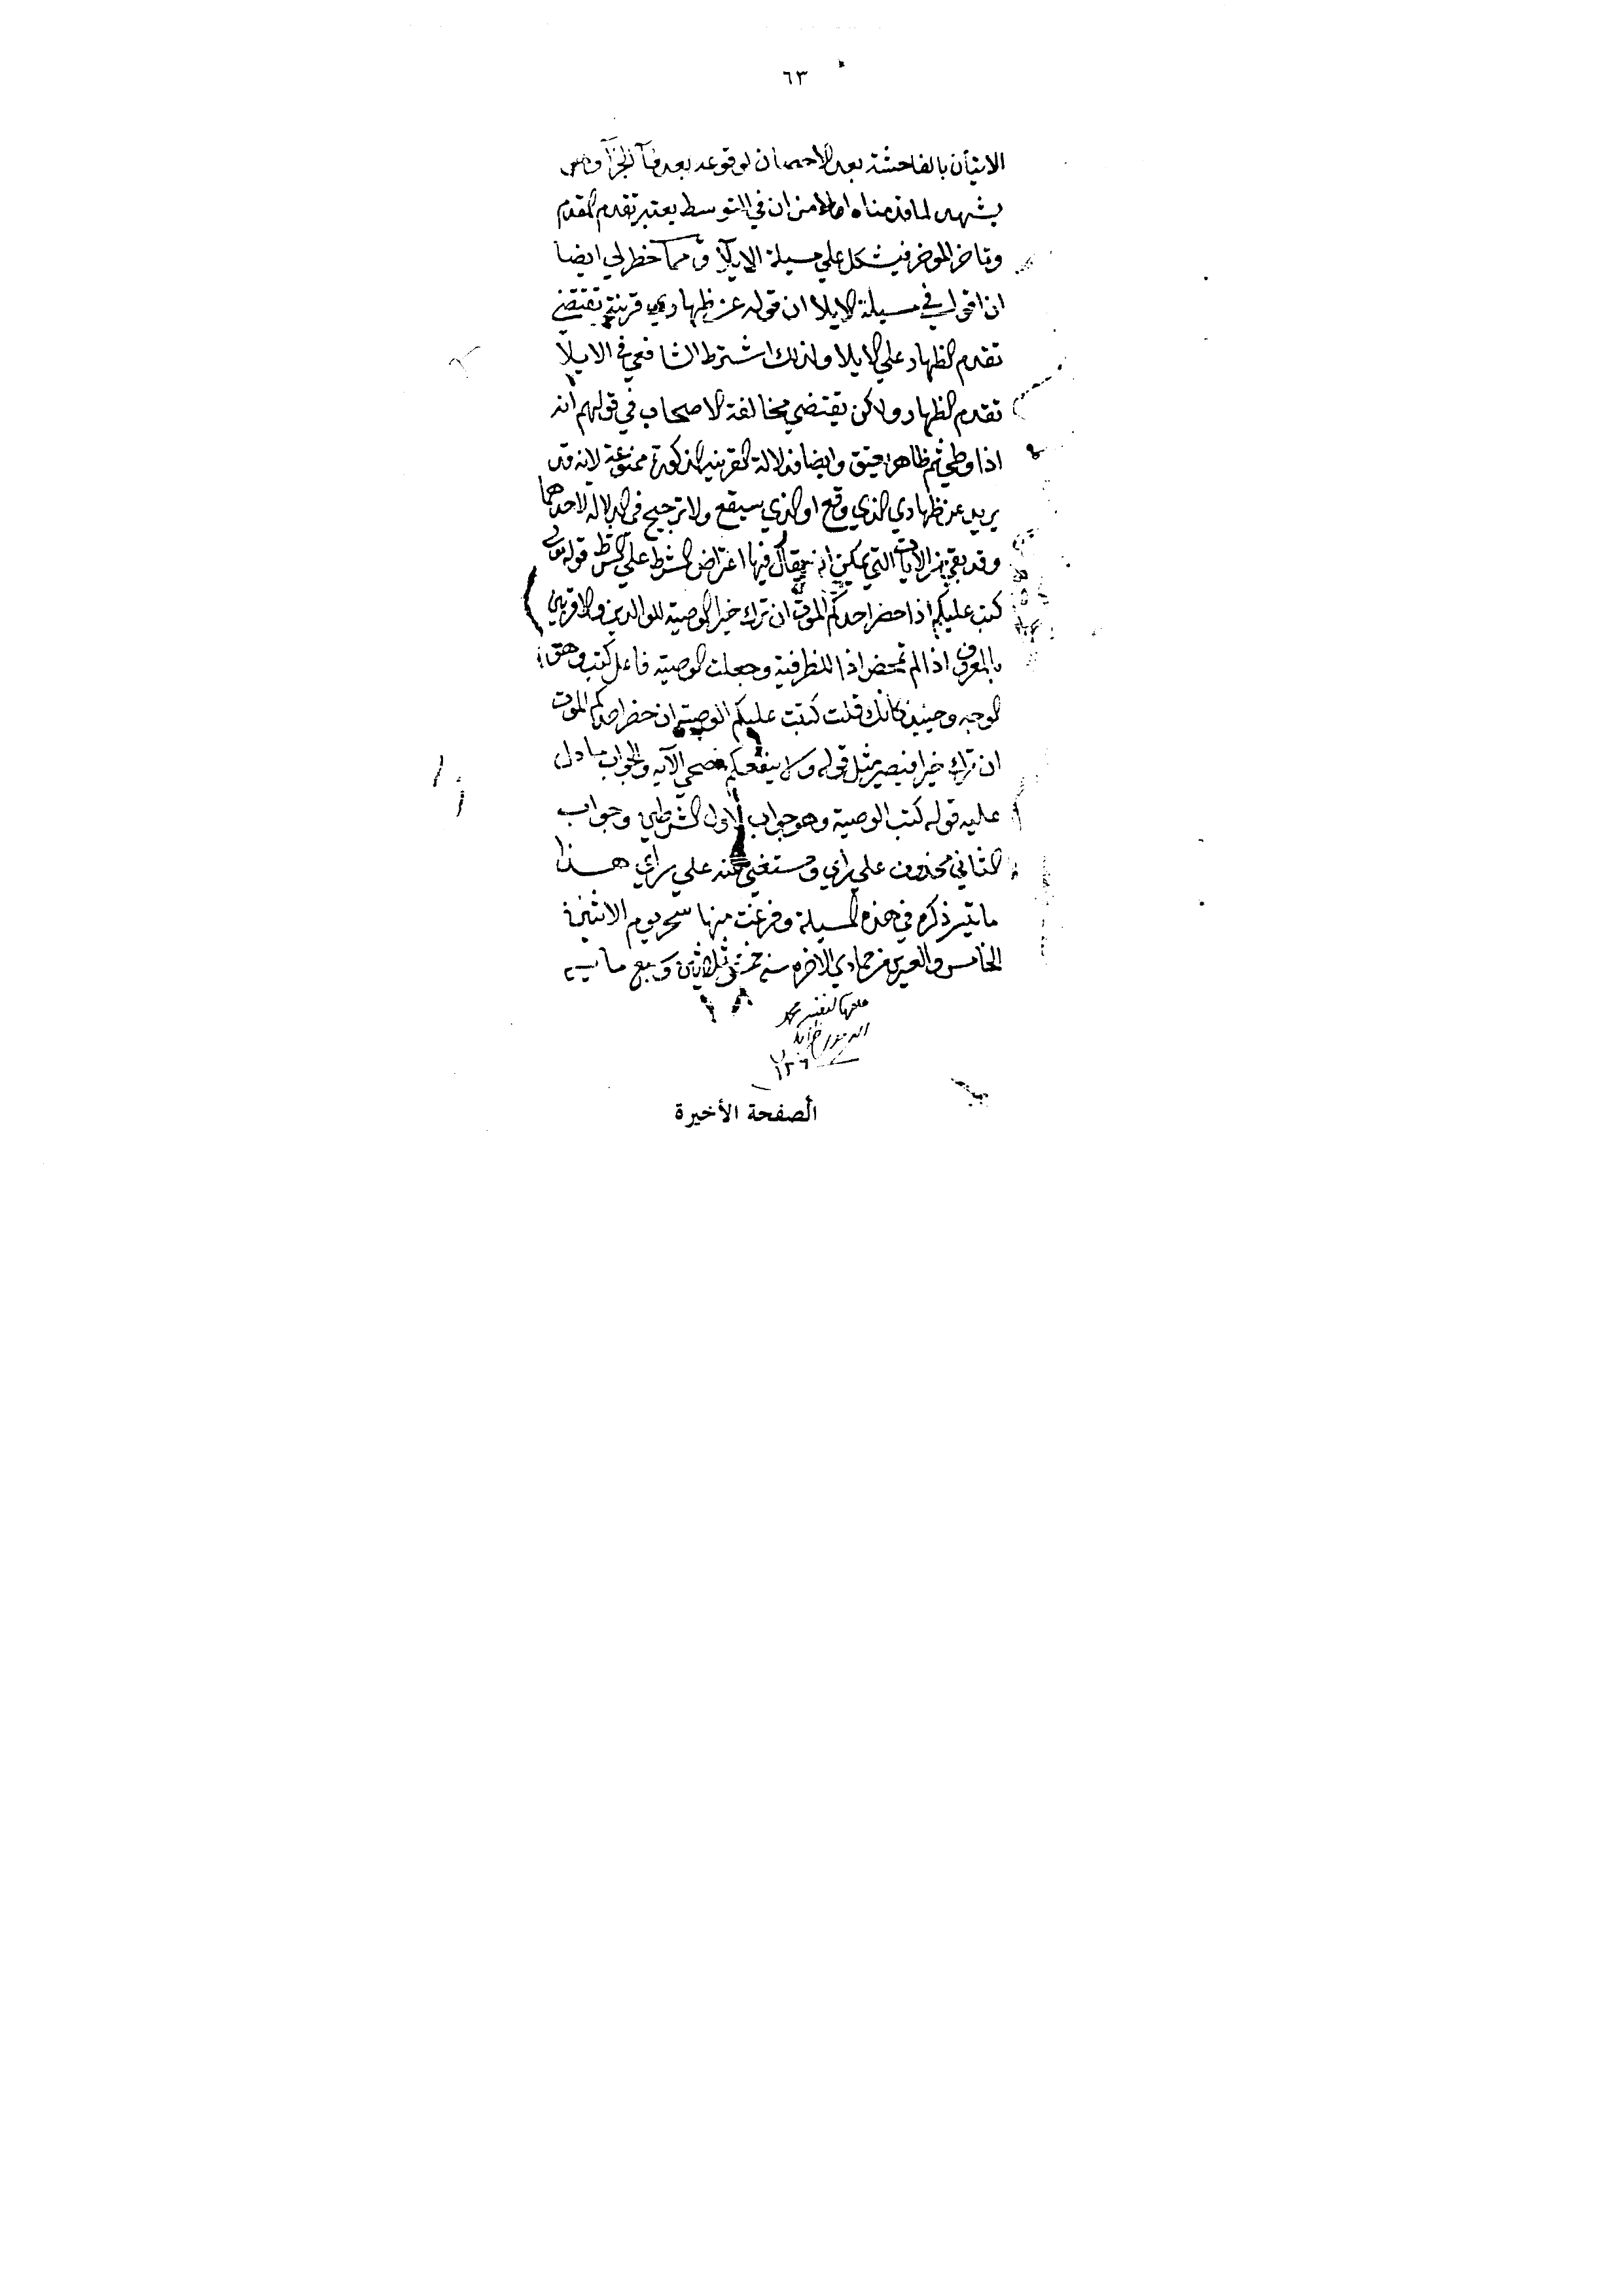 ٦٣
الاتيأن بالفاحشة بعد الاحصان لوقوعه بعد فآ الجزآ وهو
يشهد لما قدمناه املا من ان في التوسط يعتبر تقدم المقدم
وتاخر الموخر فيشكل علي مسيلة الايلآ ومما خطر لي ايضا
ان اقول في مسيلة الايلا ان قوله عن ظهاري قرينة تقتضي
تقدم الظهار علي الايلا ولذلك اشترط الشافعي في الايلآ
تقدم الظهار ولاكن يقتضي مخالفة الاصحاب في قولهم انه
اذا وطي ثم ظاهر عتق وايضا فدلالة القرينه المذكورة ممنوعة لانه قد
يريد عن ظهاري الذي وقع او الذي سيقع ولا ترجيح في الدلاله لاحدهما
وقد بقي من الايات التي يمكن ان يقال فيها اعتراض الشرط علي الشرط قوله تعالي
كتب عليكم اذا حضر احدكم الموت ان ترك خيرا الوصية للوالدين والاقربين
بالمعروف اذا لم تمحض اذا للظرفية وجعلت الوصيه فاعل كتب وهو
الوجه وحينيذ كانك قلت كتبت عليكم الوصية ان حضر احدكم الموت
ان ترك خيرا فيصير مثل قوله ولا ينفعكم نصحي الآيه والجواب ما دل
عليه قوله كتب الوصية وهو جواب الاول الشرطي وجواب
الثاني محذوف علي راي ومستغني عنه علي راي هذا
ما تيسر ذكره في هذه المسيلة وفرغت منها سحر يوم الاثنين
الخامس والعشرين من جمادي الاخره سنه خمس وثلاثين وسبع مايه
الصفحة الأخيرة